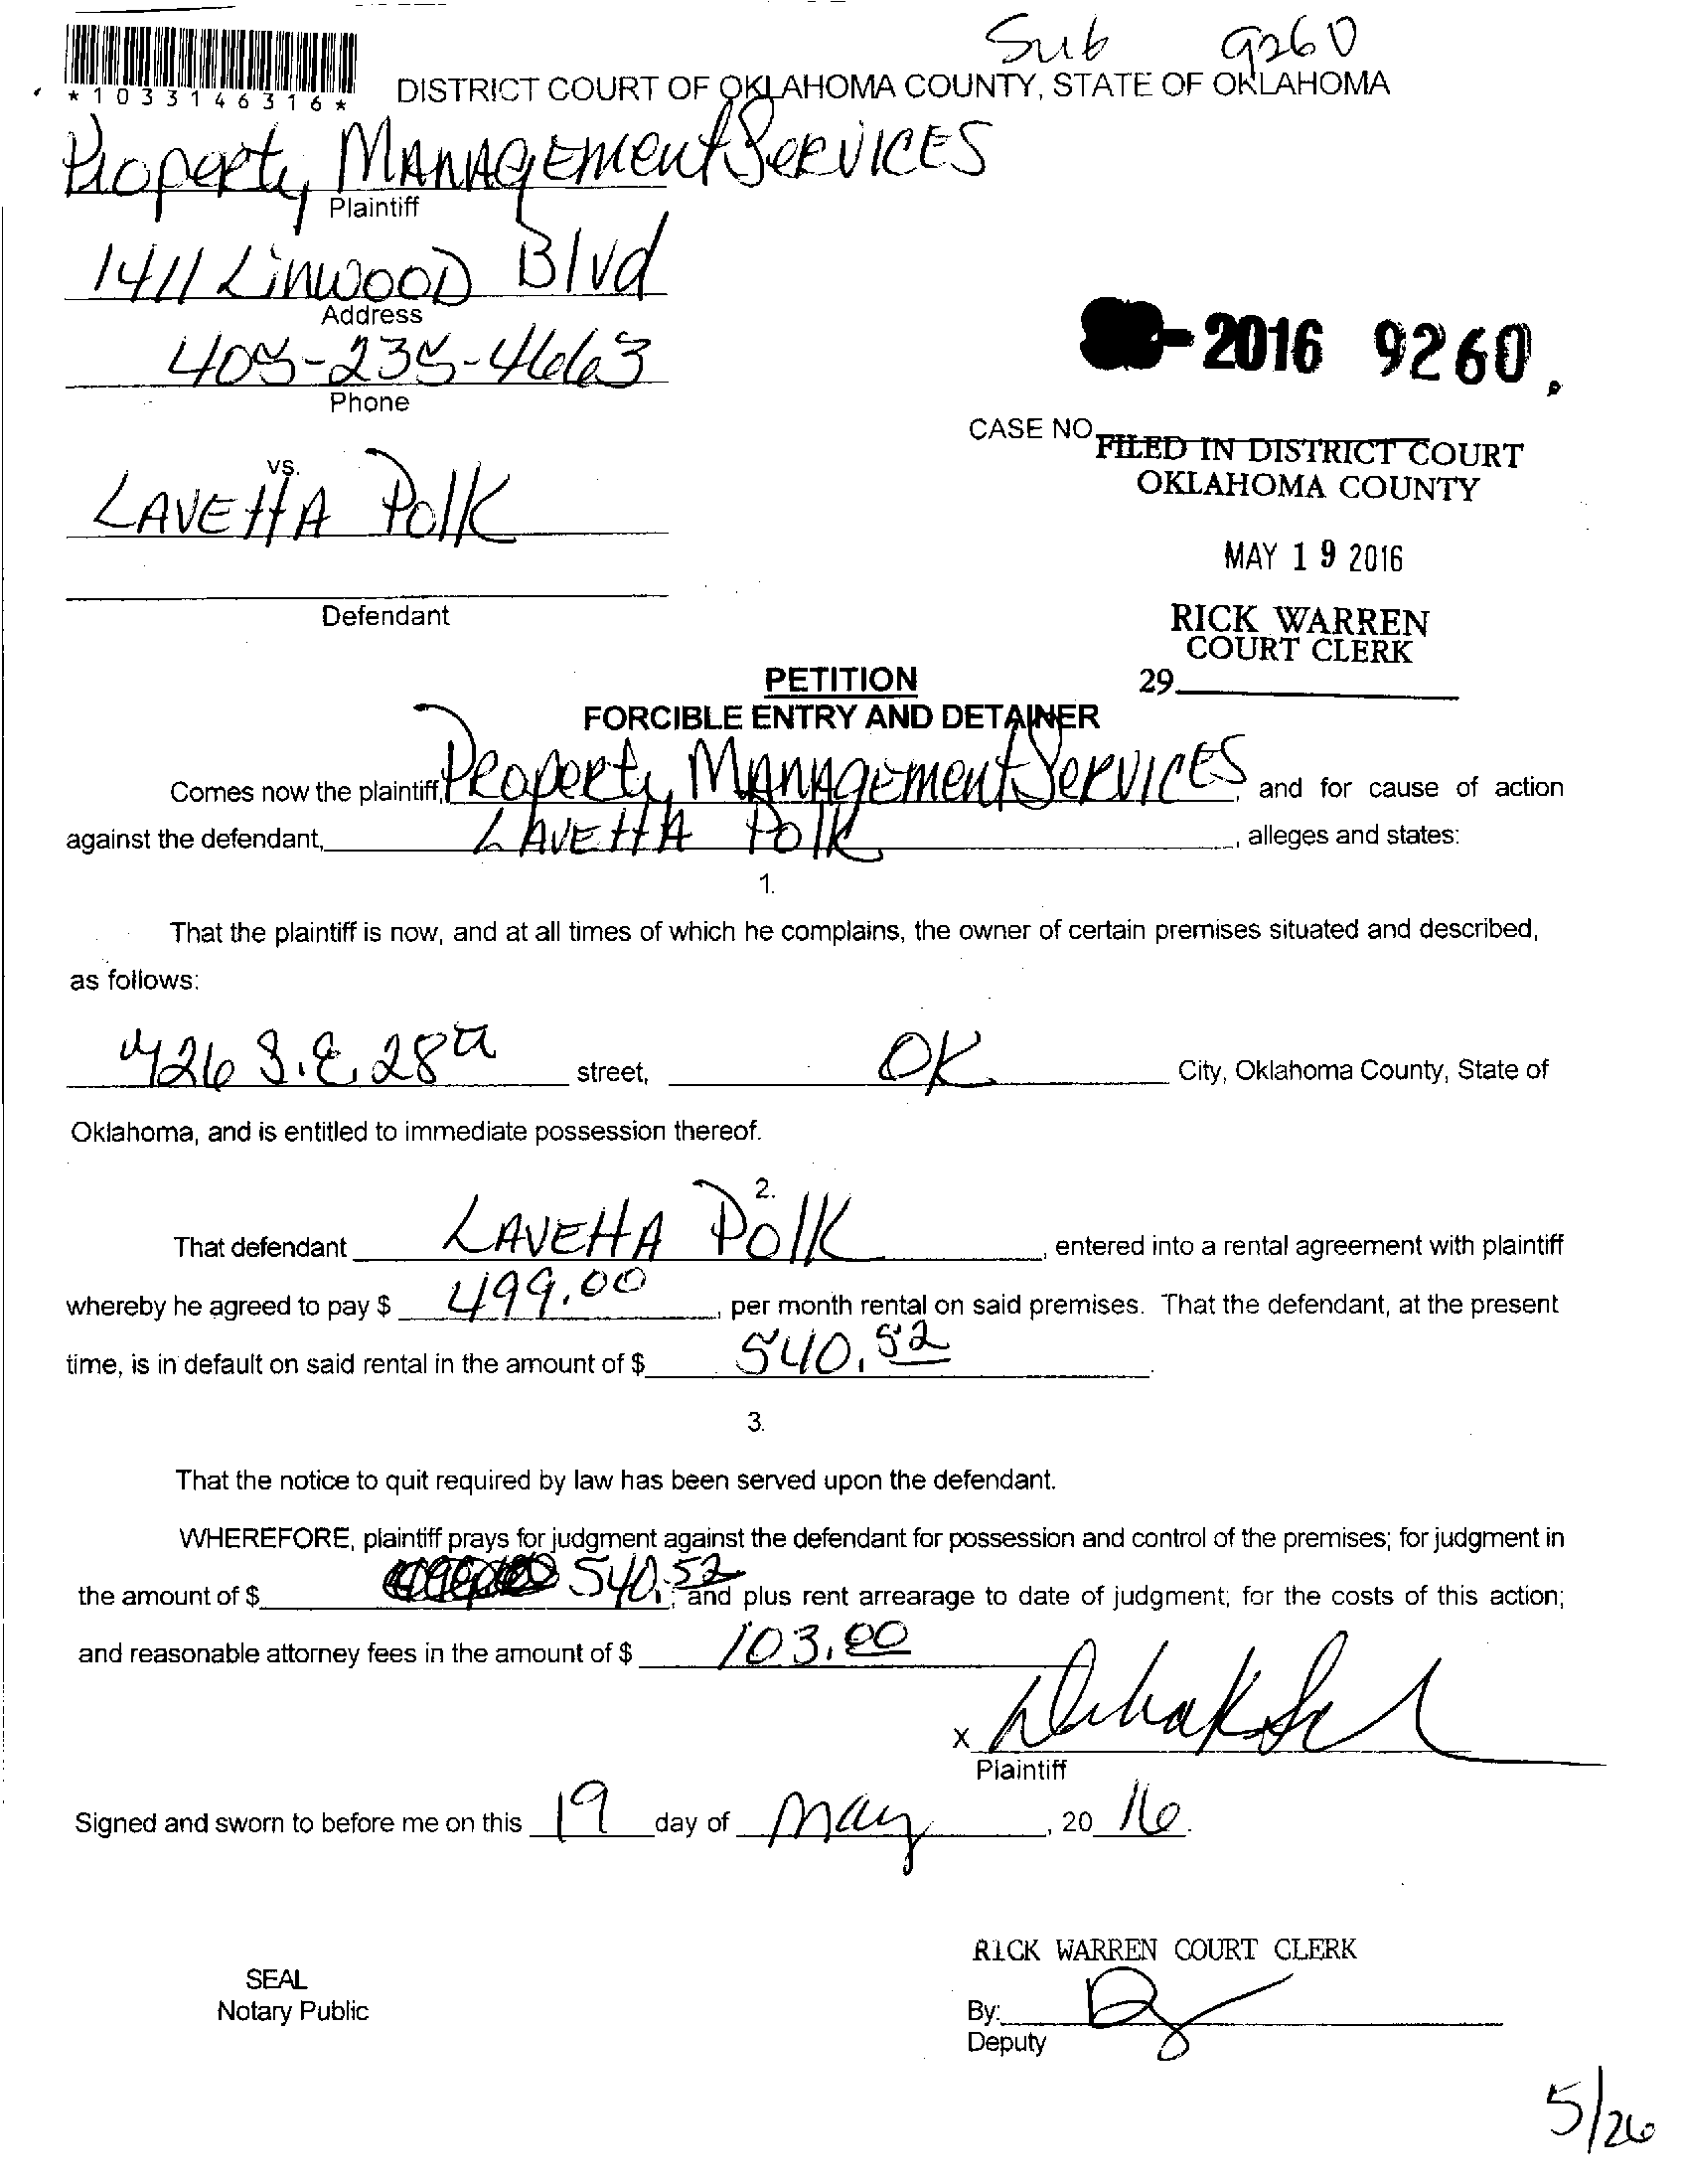 Sub 9260
*1033146316*
DISTRICT COURT OF OKLAHOMA COUNTY, STATE OF OKLAHOMA
Property Management Services
Plaintiff
1411 Linwood Blvd
Address
405-235-4663
Phone
-2016 9260
CASE NO.
FILED IN DISTRICT COURT
OKLAHOMA COUNTY
vs.
LAVEttA Polk
MAY 19 2016
Defendant
RICK WARREN
COURT CLERK
29
PETITION
FORCIBLE ENTRY AND DETAINER
Comes now the plaintiff, Property Management Services, and for cause of action
against the defendant, LAVEttA Polk, alleges and states:
1.
That the plaintiff is now, and at all times of which he complains, the owner of certain premises situated and described,
as follows:
426 S.E. 28th street, OK City, Oklahoma County, State of
Oklahoma, and is entitled to immediate possession thereof.
2.
That defendant LAVEttA Polk, entered into a rental agreement with plaintiff
whereby he agreed to pay $ 499.00, per month rental on said premises. That the defendant, at the present
time, is in default on said rental in the amount of $ 540.52.
3.
That the notice to quit required by law has been served upon the defendant.
WHEREFORE, plaintiff prays for judgment against the defendant for possession and control of the premises; for judgment in
the amount of $ 540.52; and plus rent arrearage to date of judgment; for the costs of this action;
and reasonable attorney fees in the amount of $ 103.00
X
Plaintiff
Signed and sworn to before me on this 19 day of May, 2016.
RICK WARREN COURT CLERK
SEAL
Notary Public
By:
Deputy
5/26